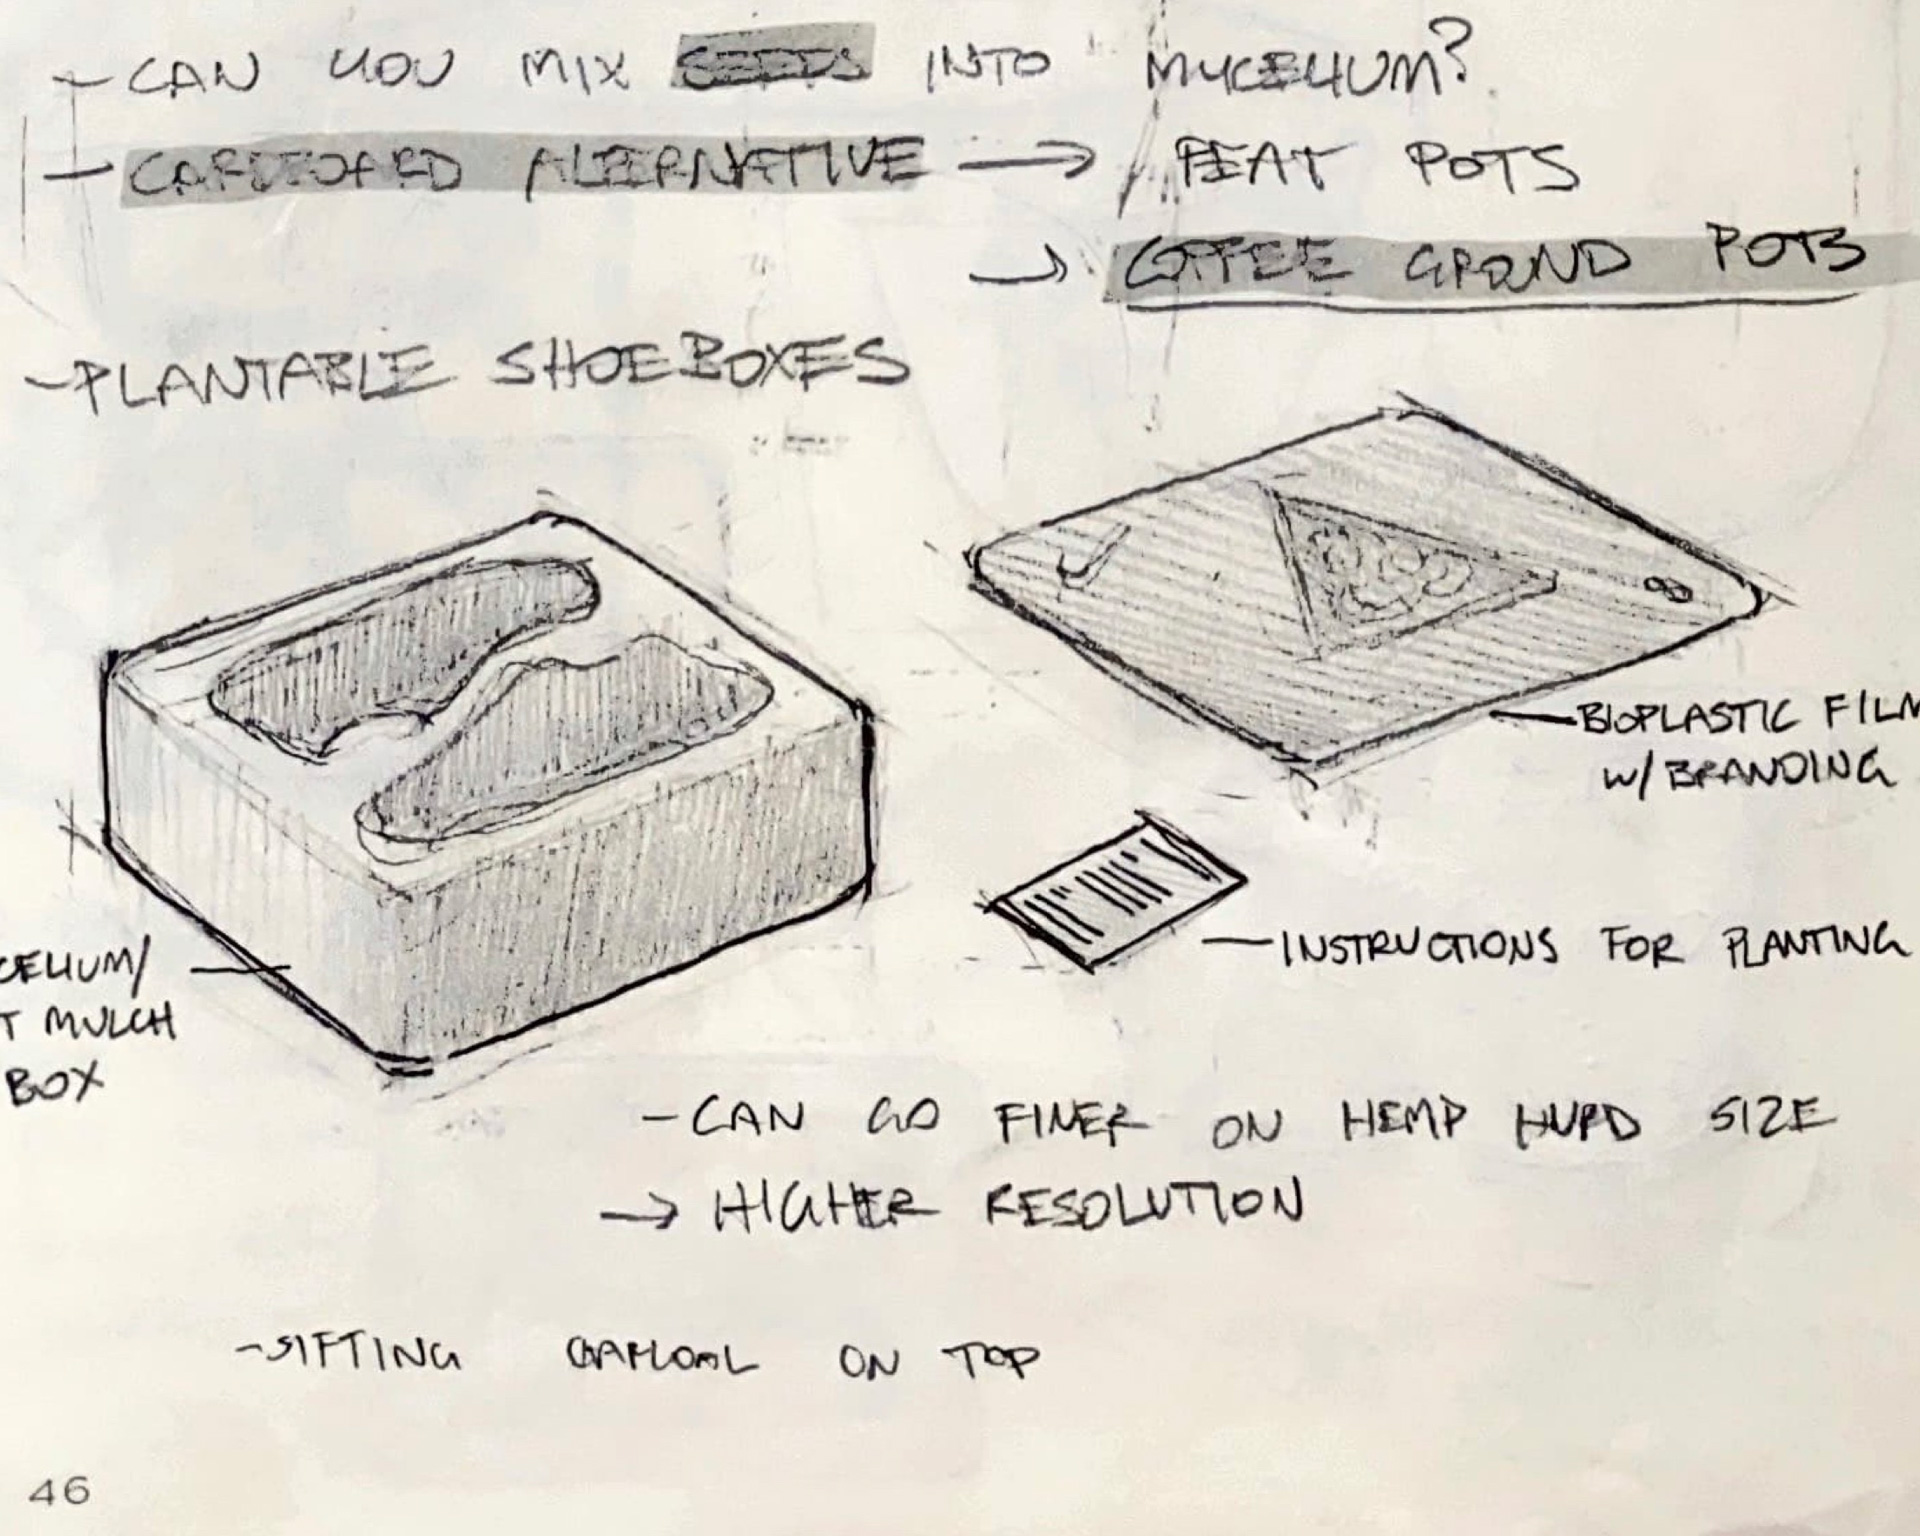 - CAN YOU MIX SEEDS INTO MYCELIUM?
- CARDBOARD ALTERNATIVE → PEAT POTS
→ COFFEE GROUND POTS
- PLANTABLE SHOEBOXES
BIOPLASTIC FILM
W/ BRANDING
INSTRUCTIONS FOR PLANTING
CELIUM/
T MULCH
BOX
- CAN GO FINER ON HEMP HURD SIZE
→ HIGHER RESOLUTION
- SIFTING ON TOP
46